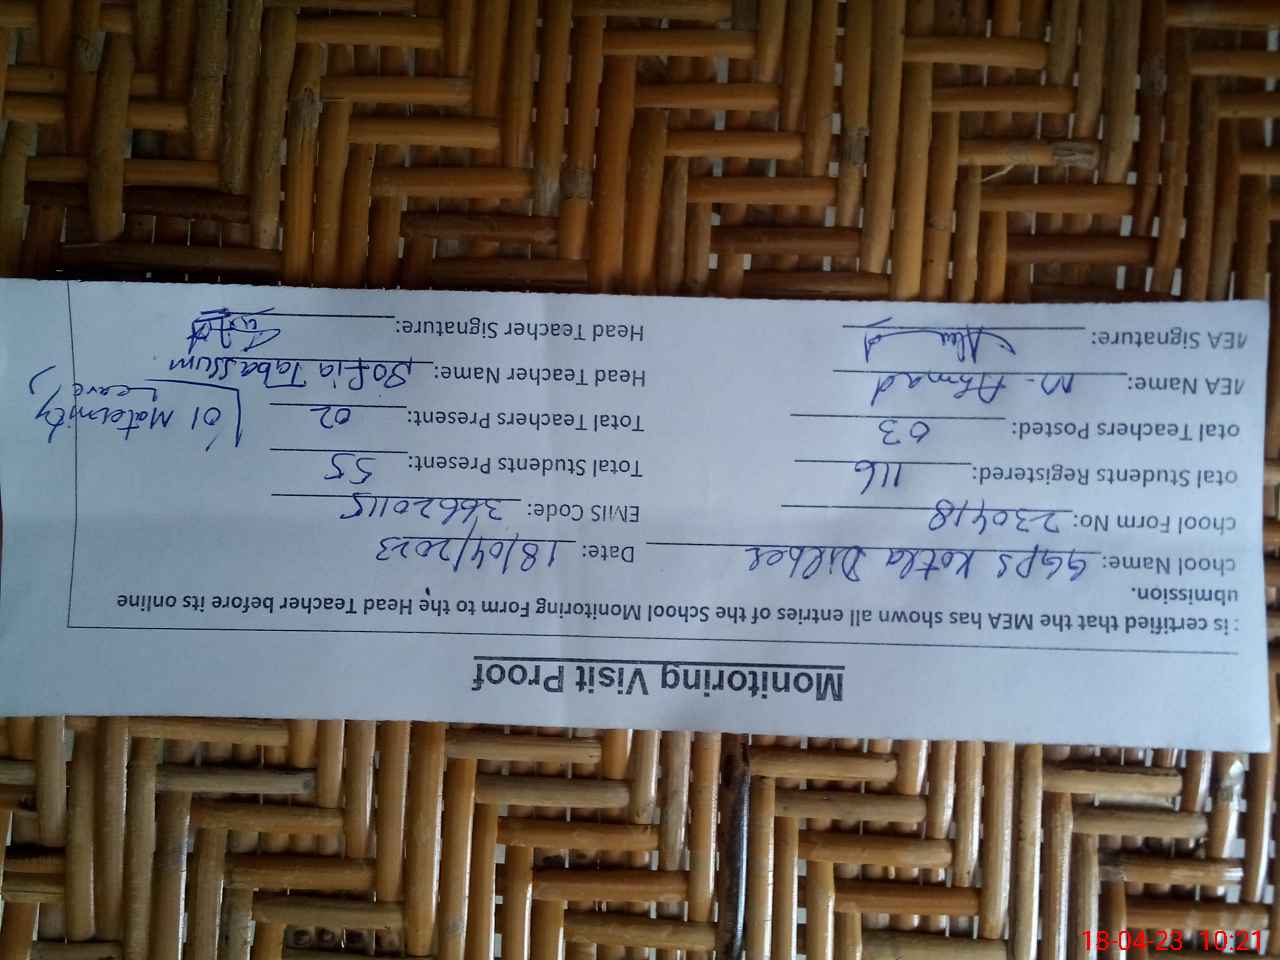 Monitoring Visit Proof
: is certified that the MEA has shown all entries of the School Monitoring Form to the Head Teacher before its online
ubmission.
chool Name: GGPS Kotla Dilber Date: 18/04/2023
chool Form No: 230418 EMIS Code: 36620115
otal Students Registered: 116 Total Students Present: 55
otal Teachers Posted: 03 Total Teachers Present: 02 (01 Maternity Leave)
MEA Name: M. Ahmad Head Teacher Name: Sofia Tabassum
MEA Signature: Head Teacher Signature:
18-04-23 10:21